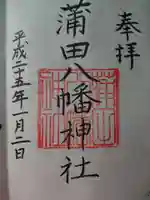 奉拝
蒲田八幡神社
平成二十五年一月二日